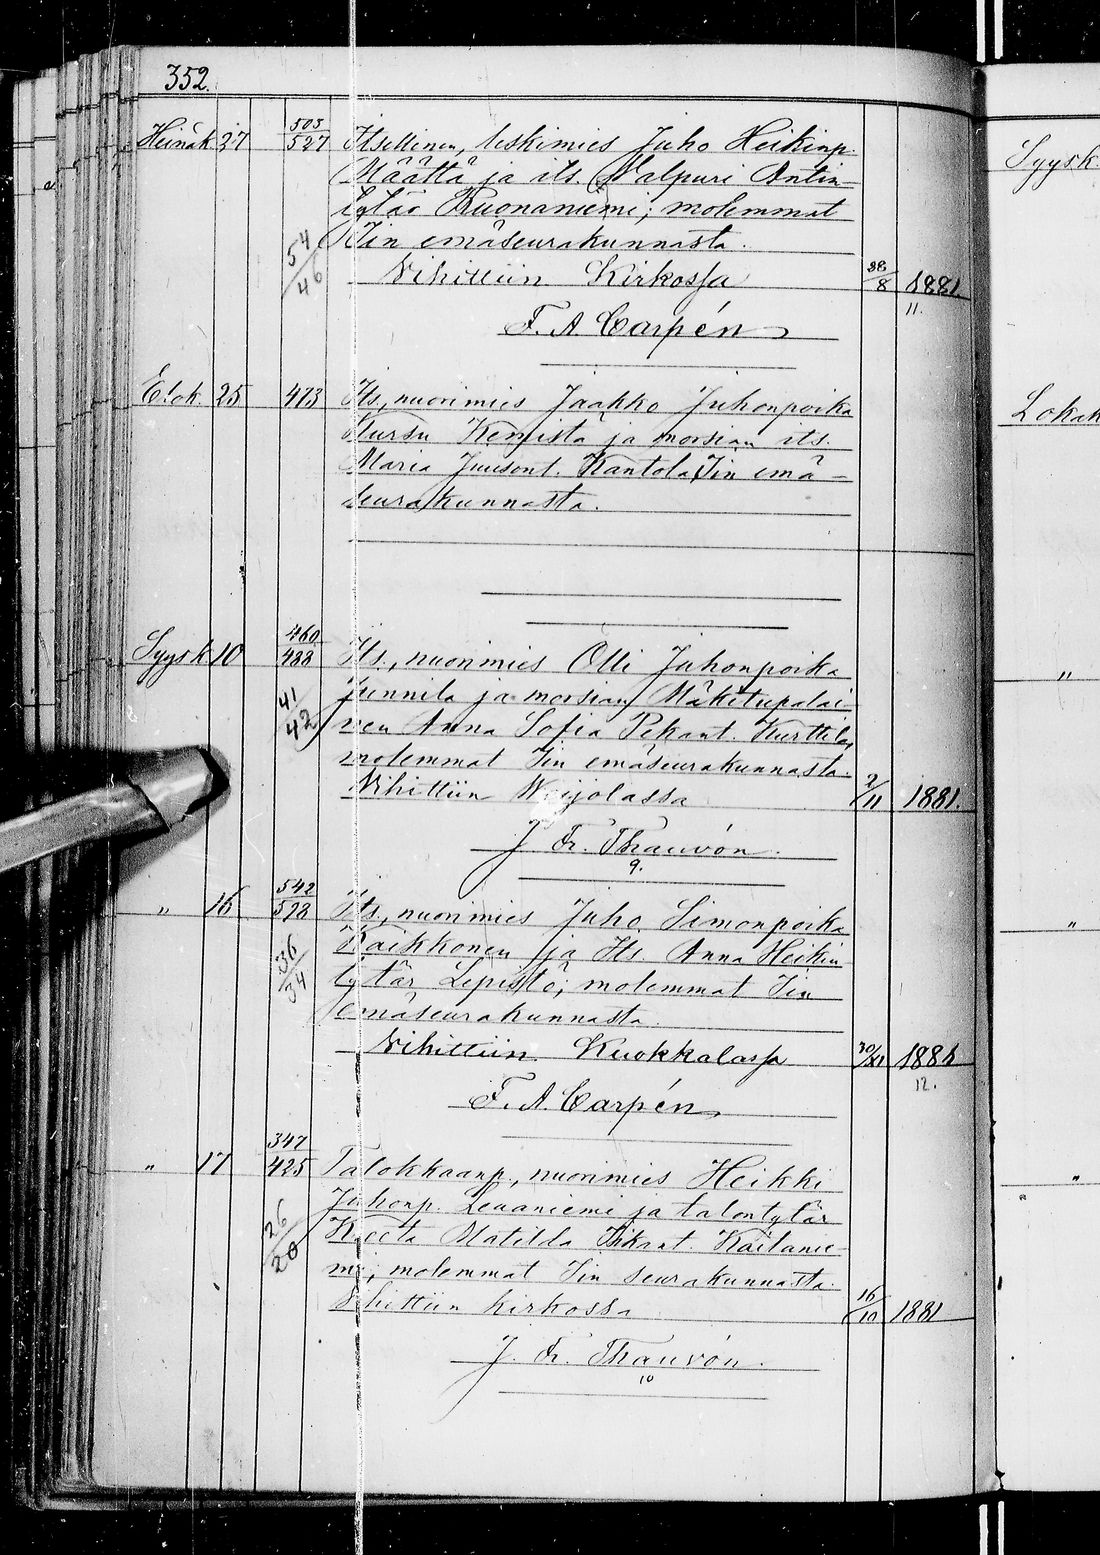 352.
Heinäk 27 503/527 Itsellinen, leskimies Juho Heikinp.
Määttä ja its. Walpuri Antin-
tytär Ruonaniemi; molemmat
54/46 Iin emäseurakunnasta.
Vihittiin Kirkossa 28/8 1881.
11.
F. A. Carpén
Elok. 25 473 Its., nuorimies Jaakko Juhonpoika
Kursu Kemistä ja morsian its.
Maria Juusont. Kantola Iin emä-
seurakunnasta.
Syysk 10 460/488 Its., nuorimies Olli Juhonpoika
41/42 Junnila ja morsian Mäkitupalai-
nen Anna Sofia Pekant. Kurttila,
molemmat Iin emäseurakunnasta.
Vihittiin Weijolassa 2/11 1881.
J. Fr. Thauvón.
9.
" 16 542/598 Its., nuorimies Juho Simonpoika
36/34 Kaikkonen ja Its. Anna Heikin
tytär Lepistö; molemmat Iin
emäseurakunnasta.
Vihittiin Kuokkalassa 30/11 1881
12.
F. A. Carpén
" 17 347/425 Talokkaanp., nuorimies Heikki
26/20 Juhonp. Leuaniemi ja talontytär
Matilda Kaitanie-
mi; molemmat Iin seurakunnasta.
Vihittiin kirkossa 16/10 1881
J. Fr. Thauvón.
10
Syysk.
Lokak
"
"
"